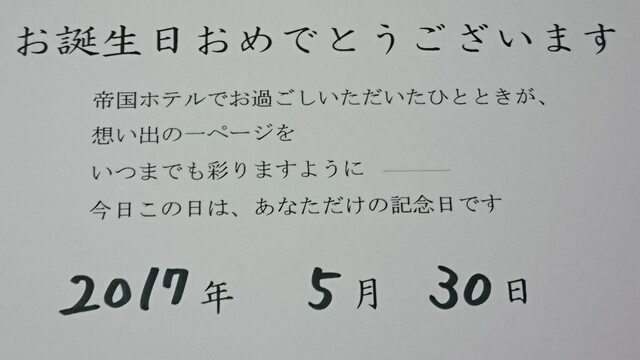 お誕生日おめでとうございます
帝国ホテルでお過ごしいただいたひとときが、
想い出の一ページを
いつまでも彩りますように ――
今日この日は、あなただけの記念日です
2017年 5月 30日